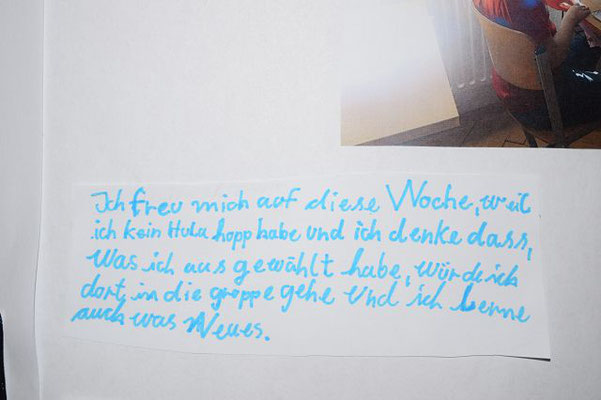 Ich freu mich auf diese Woche, weil
ich kein Hula hopp habe und ich denke dass,
Was ich aus gewählt habe, würde ich
dort, in die groppe gehe Und ich lerne
auch was Neues.